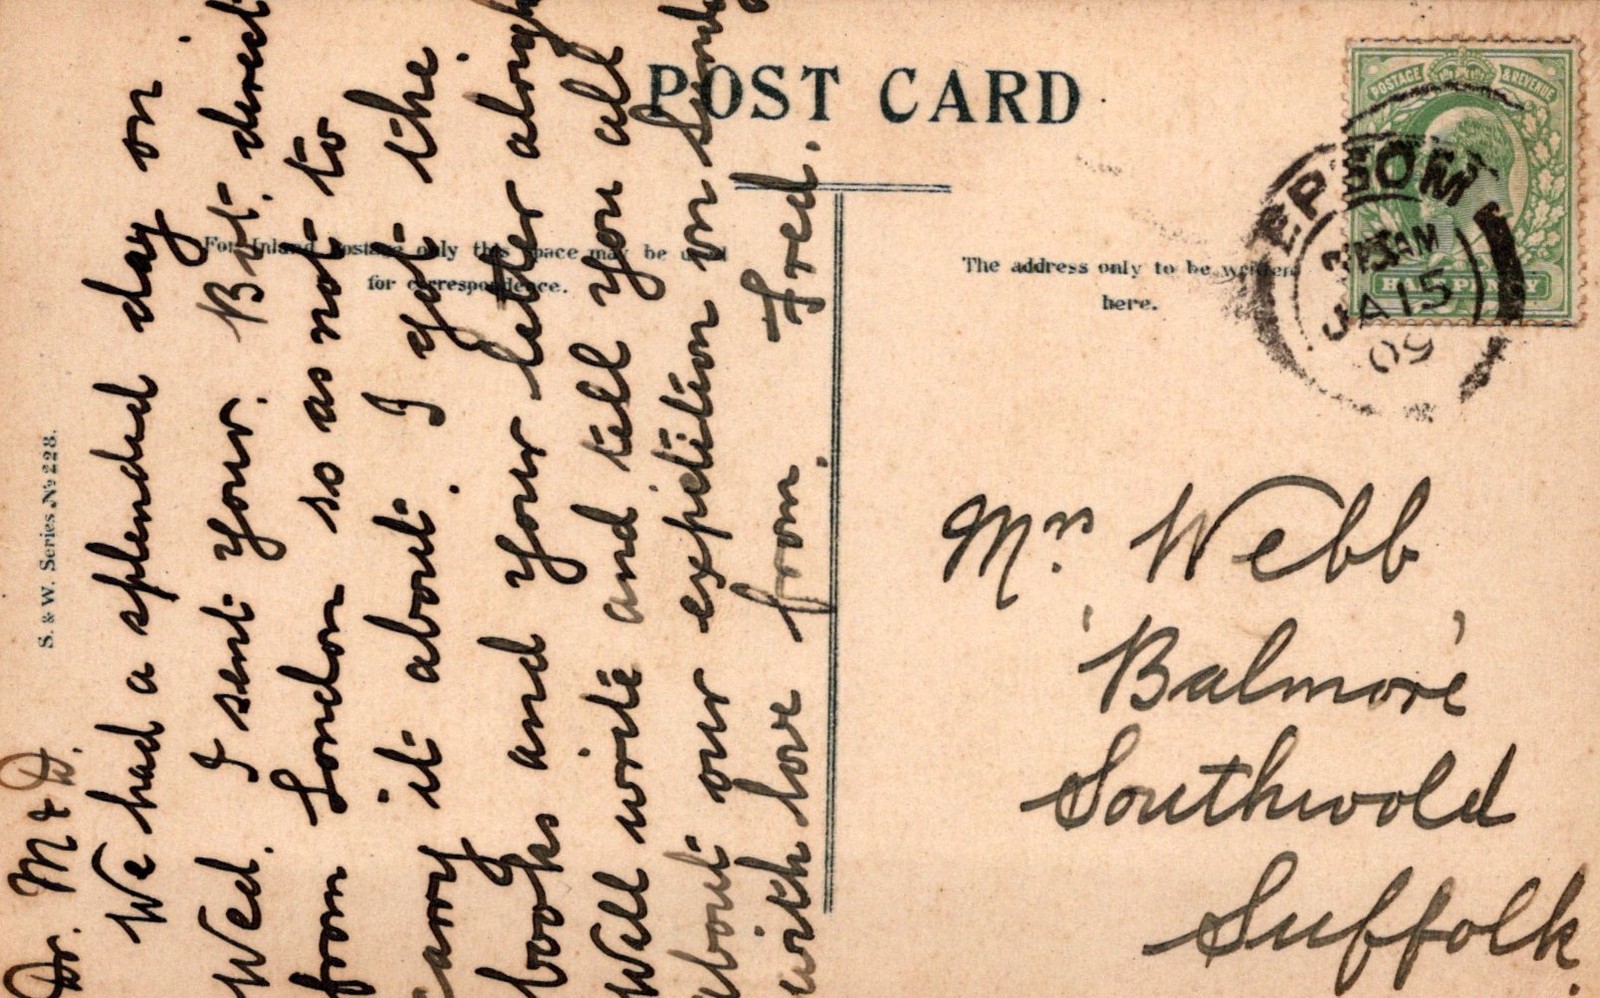 POST CARD
For Inland Postage only this space may be used
for correspondence.
The address only to be written
here.
S. & W. Series № 228.
POSTAGE & REVENUE
HALFPENNY
EPSOM
JA 15
05
Dr. M & D.
We had a splended day on
Wed. I sent your. Bot. direct
from London so as not to
carry it about. I got the.
books and your letter alright
Will write and tell you all
about our expetition on Sunday
with love from. Fred.
Mrs Webb
'Balmore'
Southwold
Suffolk.